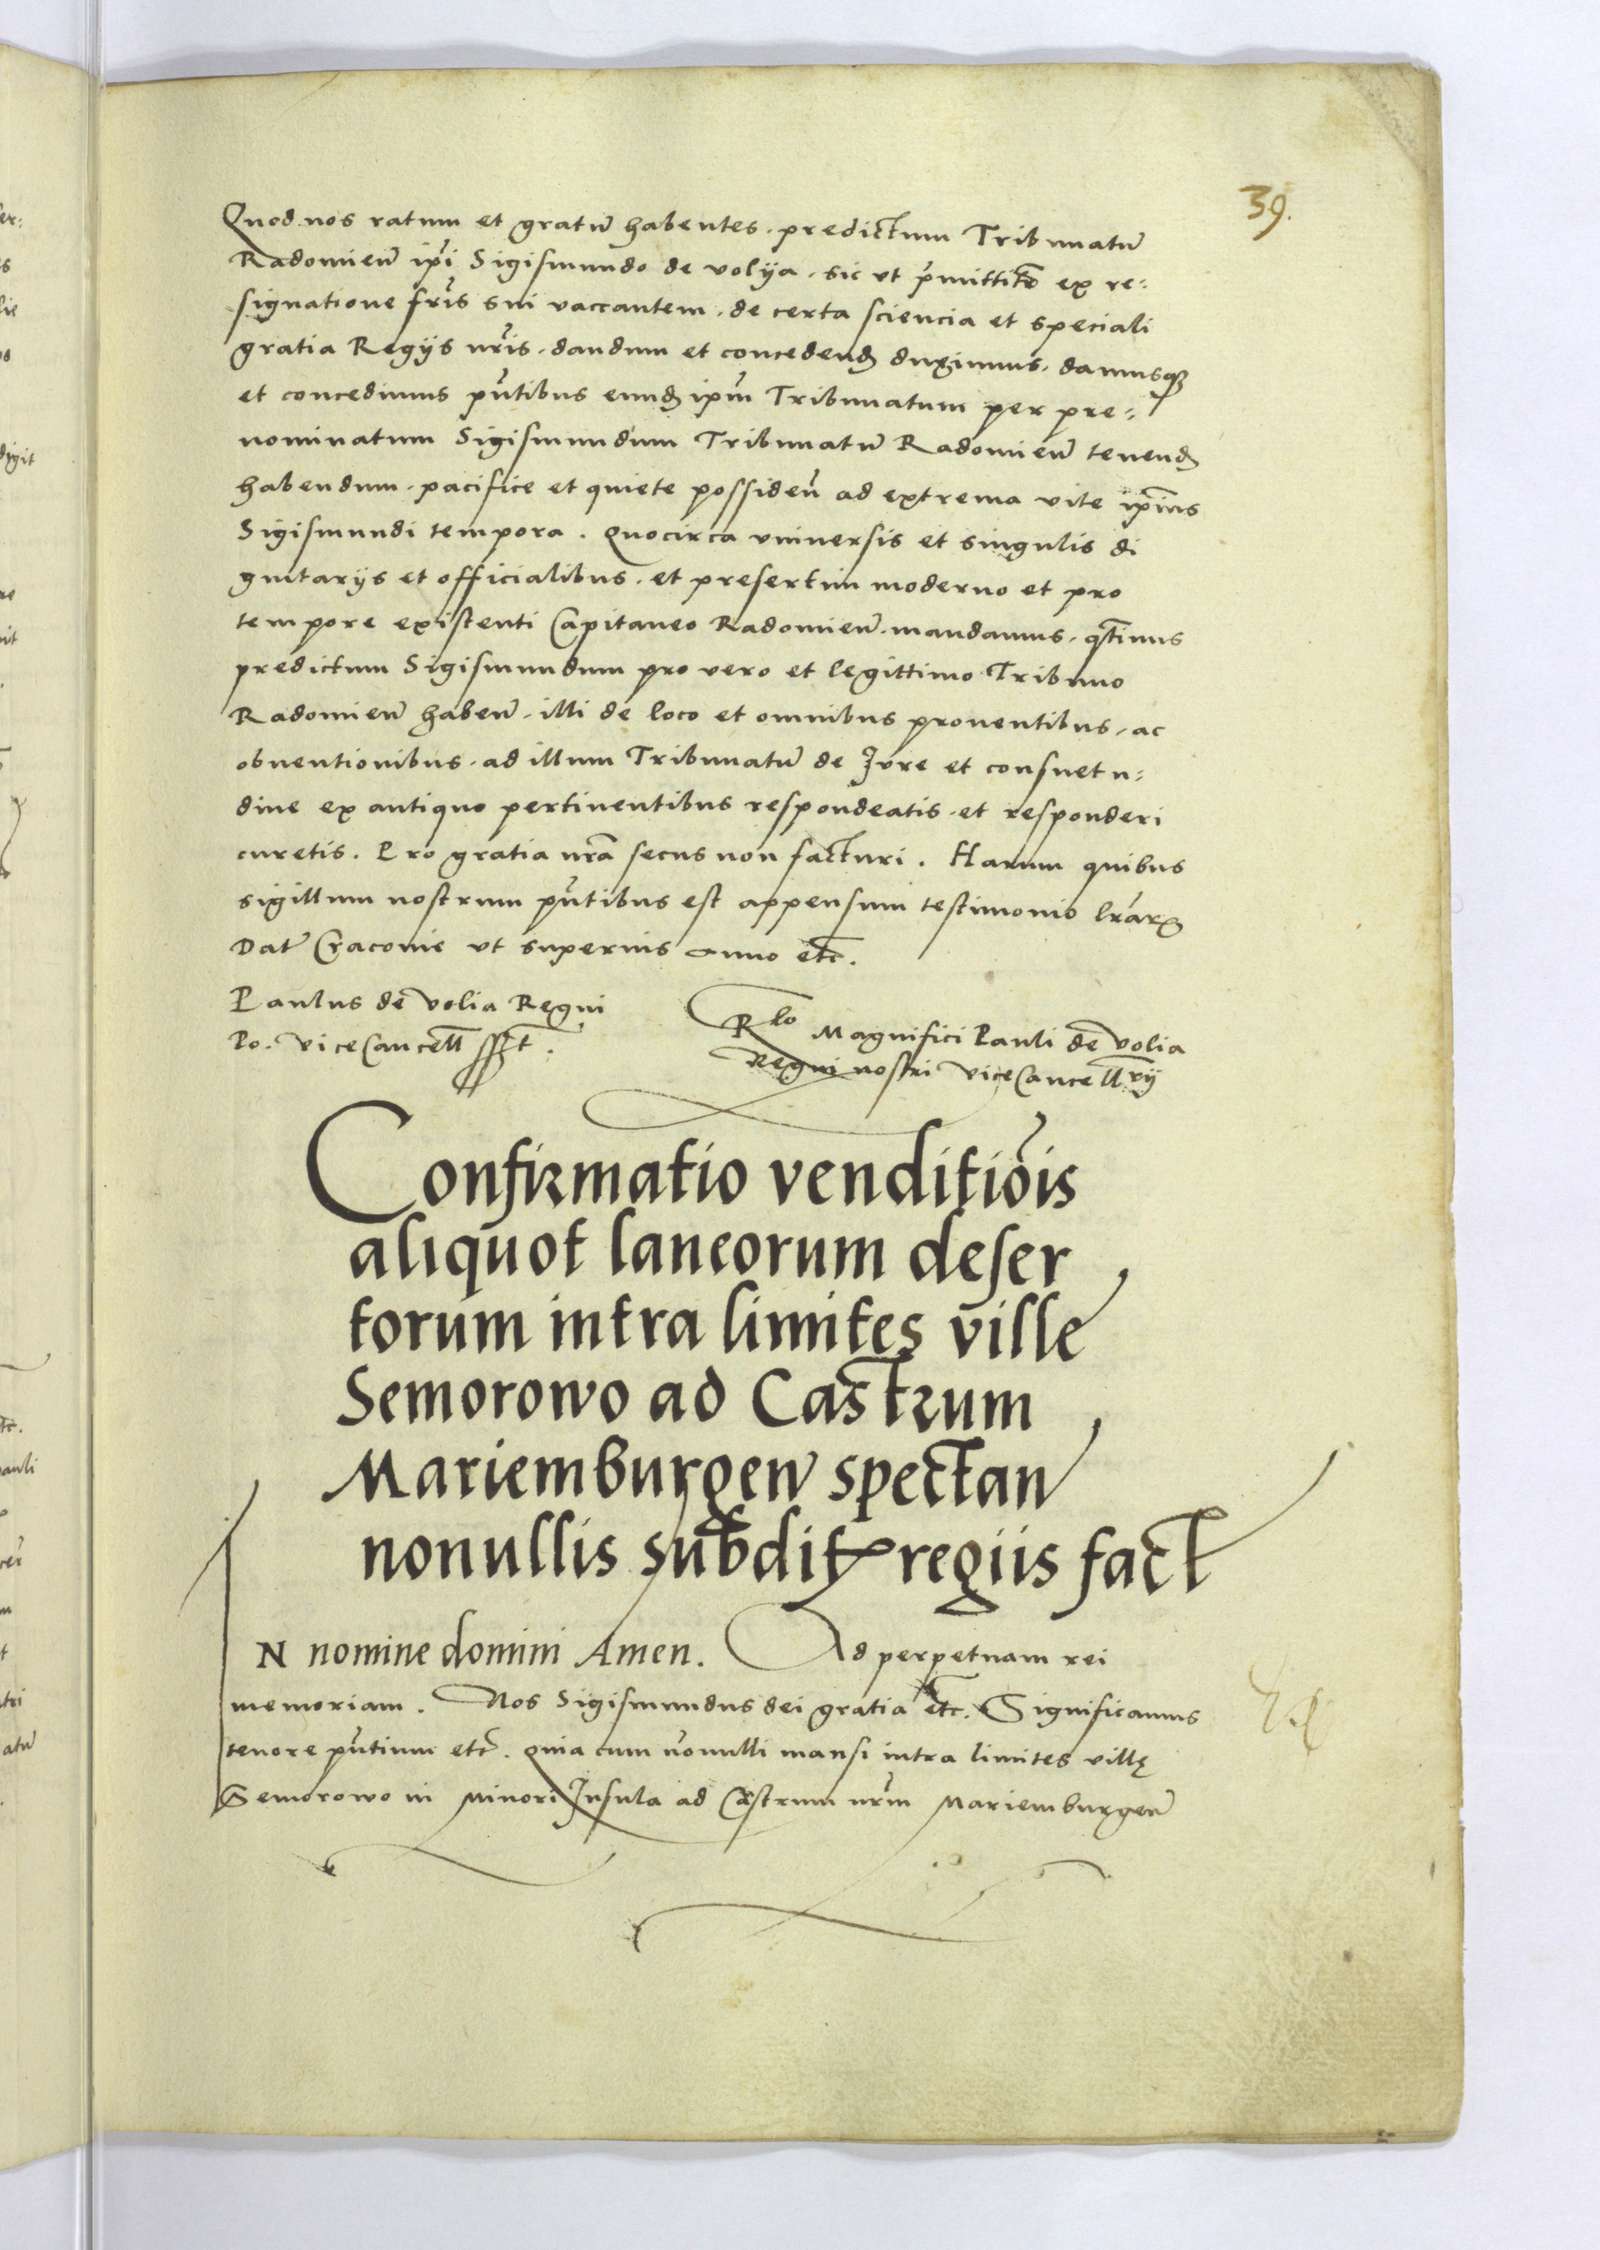 39.
Quod nos ratum et gratū habentes. predictum Tribunatū
Radomieñ ip̃i Sigismundo de volÿa. sic ut p̄mittit᷑ ex re:
signatione fr̃is sui vaccantem. de certa sciencia et speciali
gratia Regÿs nr̃is. dandum et concedend̄ duximus. damusqꝫ
et concedimus pñtibus eund̄ ip̃m Tribunatum per pre:
nominatum Sigismundum Tribunatū Radomieñ tenend̄
habendum. pacifice et quiete possideñ ad extrema vite ip̃ius
Sigismundi tempora. Quocirca vniuersis et singulis di
gnitarÿs et officialibus. et presertim moderno et pro
tempore existenti Capitaneo Radomieñ. mandamus. q̃tinus
predictum Sigismundum pro vero et legittimo Tribuno
Radomieñ habeñ. illi de loco et omnibus prouentibus. ac
obuentionibus. ad illum Tribunatū de Jure et consuetu:
dine ex antiquo pertinentibus respondeatis. et responderi
curetis. Pro gratia nr̃a secus non facturi. Harum quibus
sigillum nostrum pñtibus est appensum testimonio lr̃arꝝ
Dat̃ Cracouie ut superius anno etc̃.
Paulus de Volia Regni
Po. ViceCancell̃ sst.
Rlo Magnifici Pauli de Volia
Regni nostri ViceCancellrÿ
Confirmatio venditiõis
aliquot laneorum deser
torum intra limites ville
Semorowo ad Castrum
Mariemburgeñ spectañ
nonullis subditꝭ regiis fact̃
IN nomine domini Amen. Ad perpetuam rei
memoriam. Nos Sigismundus dei gratia etc̃. Significamus
tenore pñtium etc̃. quia cum nõnulli mansi intra limites villę
Semorowo in Minori Insula ad Castrum nr̃m Mariemburgeñ